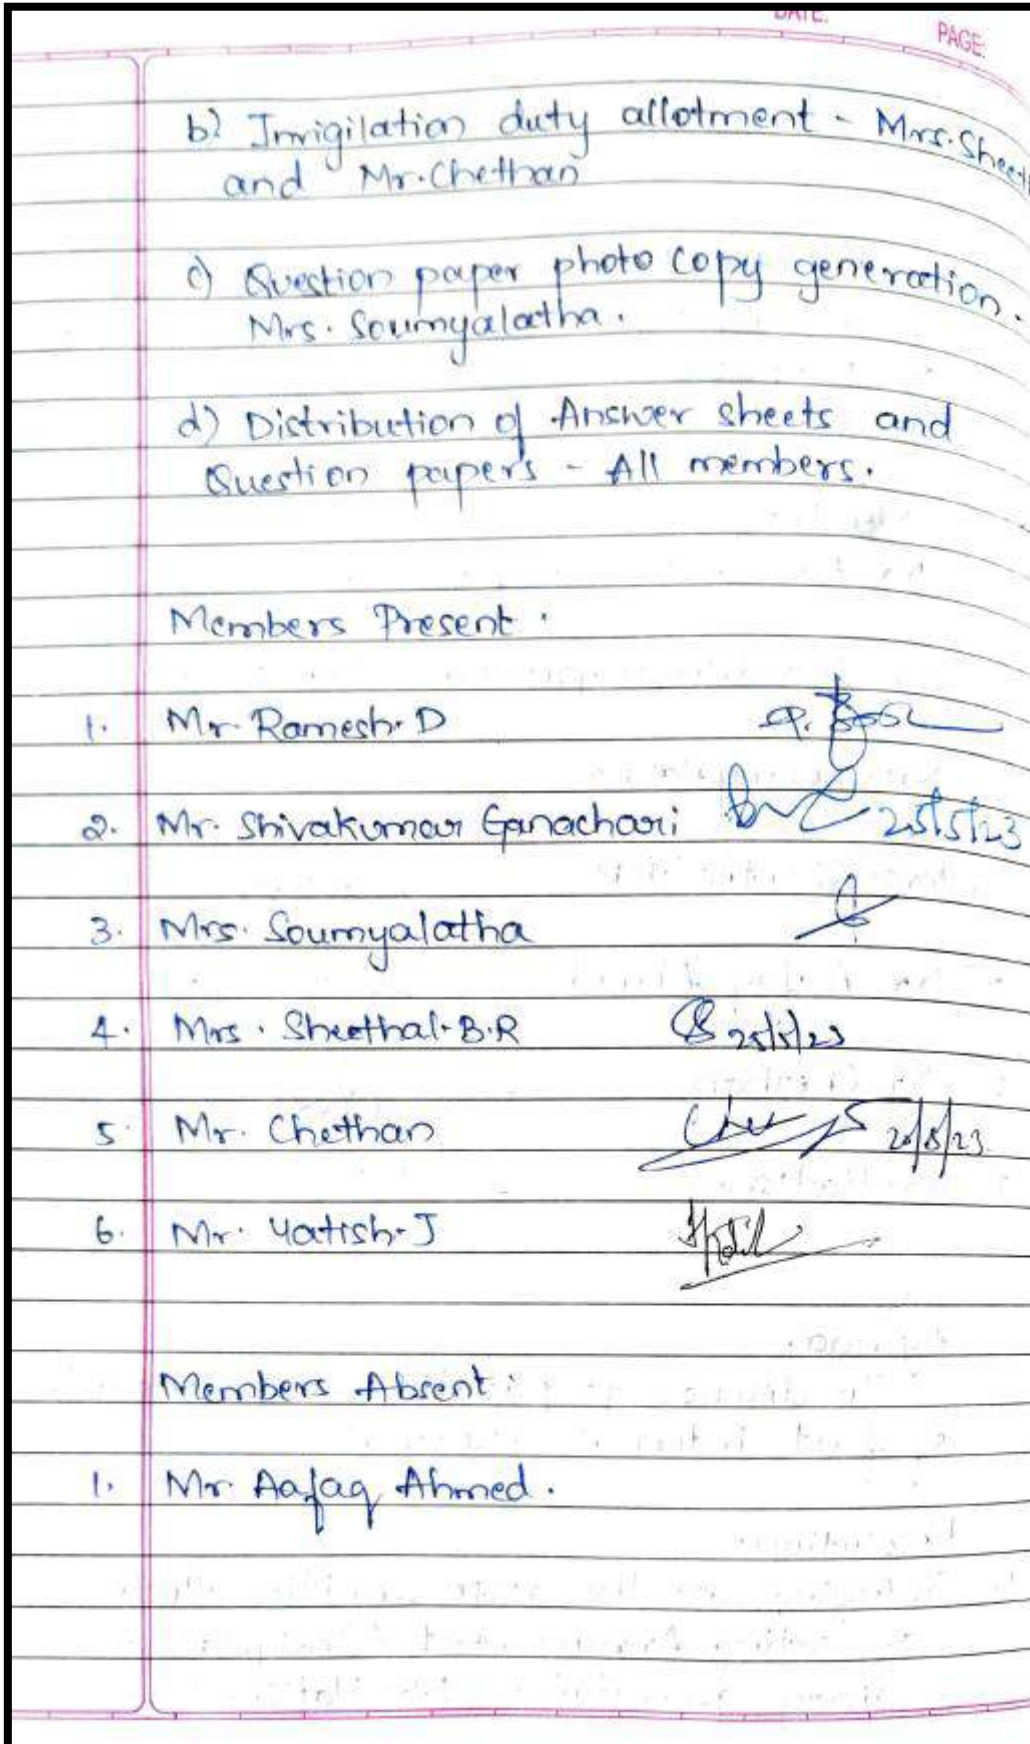 DATE:
PAGE:
b) Invigilation duty allotment - Mrs. Sheeth
and Mr. Chethan
c) Question paper photo copy generation.
Mrs. Soumyalatha.
d) Distribution of Answer sheets and
Question papers - All members.
Members Present.
1. Mr. Ramesh. D
2. Mr. Shivakumar Ganachari 25/5/23
3. Mrs. Soumyalatha
4. Mrs. Sheethal. B.R 25/5/23
5. Mr. Chethan
6. Mr. Yatish. J
Members Absent:
1. Mr. Aafaq Ahmed.